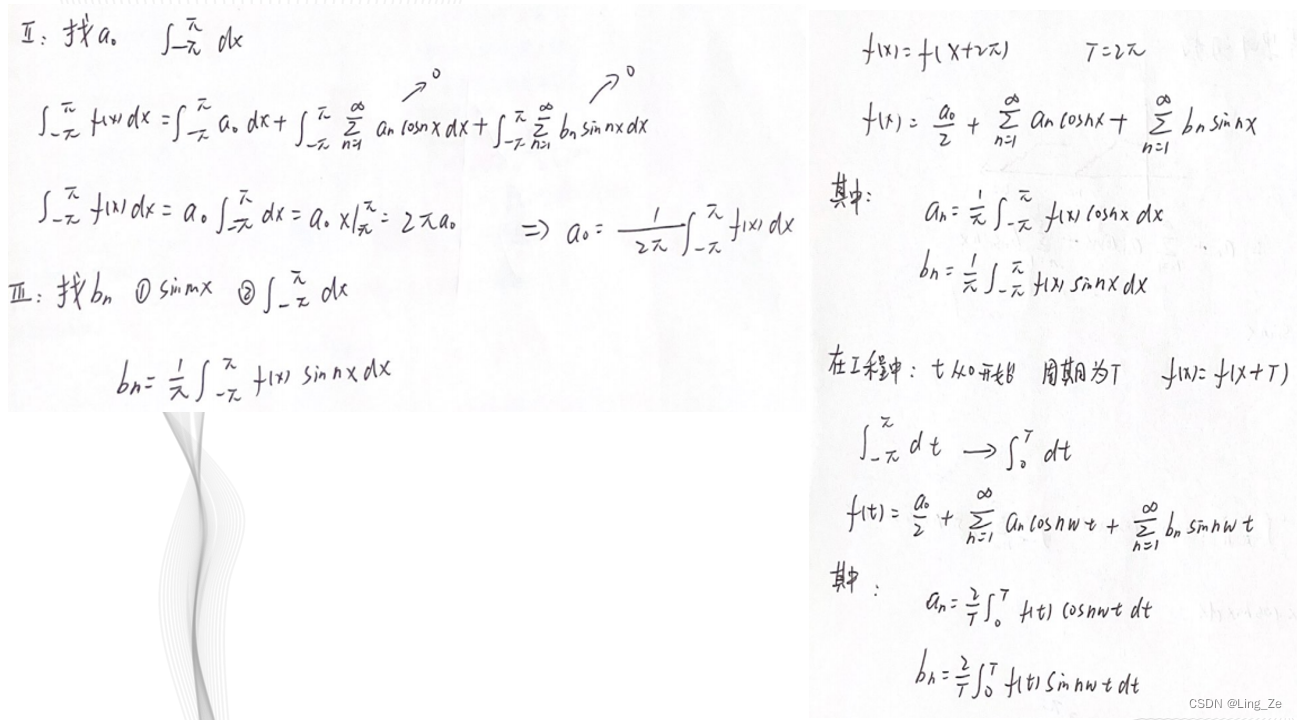 Ⅱ: 找a₀ ∫_{-π}^{π} dx
∫_{-π}^{π} f(x)dx = ∫_{-π}^{π} a₀ dx + ∫_{-π}^{π} ∑_{n=1}^{∞} aₙ cosnx dx ↗0 + ∫_{-π}^{π} ∑_{n=1}^{∞} bₙ sinnx dx ↗0
∫_{-π}^{π} f(x)dx = a₀ ∫_{-π}^{π} dx = a₀ x|_{π}^{π} = 2πa₀ ⇒ a₀ = 1/2π ∫_{-π}^{π} f(x)dx
Ⅲ: 找bₙ ① sinmx ② ∫_{-π}^{π} dx
bₙ = 1/π ∫_{-π}^{π} f(x) sinnx dx
f(x) = f(x+2π) T=2π
f(x) = a₀/2 + ∑_{n=1}^{∞} aₙ cosnx + ∑_{n=1}^{∞} bₙ sinnx
其中:
aₙ = 1/π ∫_{-π}^{π} f(x) cosnx dx
bₙ = 1/π ∫_{-π}^{π} f(x) sinnx dx
在工程中: t从0开始 周期为T f(x) = f(x+T)
∫_{-π}^{π} dt → ∫_{0}^{T} dt
f(t) = a₀/2 + ∑_{n=1}^{∞} aₙ cosnwt + ∑_{n=1}^{∞} bₙ sinnwt
其中:
aₙ = 2/T ∫_{0}^{T} f(t) cosnwt dt
bₙ = 2/T ∫_{0}^{T} f(t) sinnwt dt
CSDN @Ling_Ze